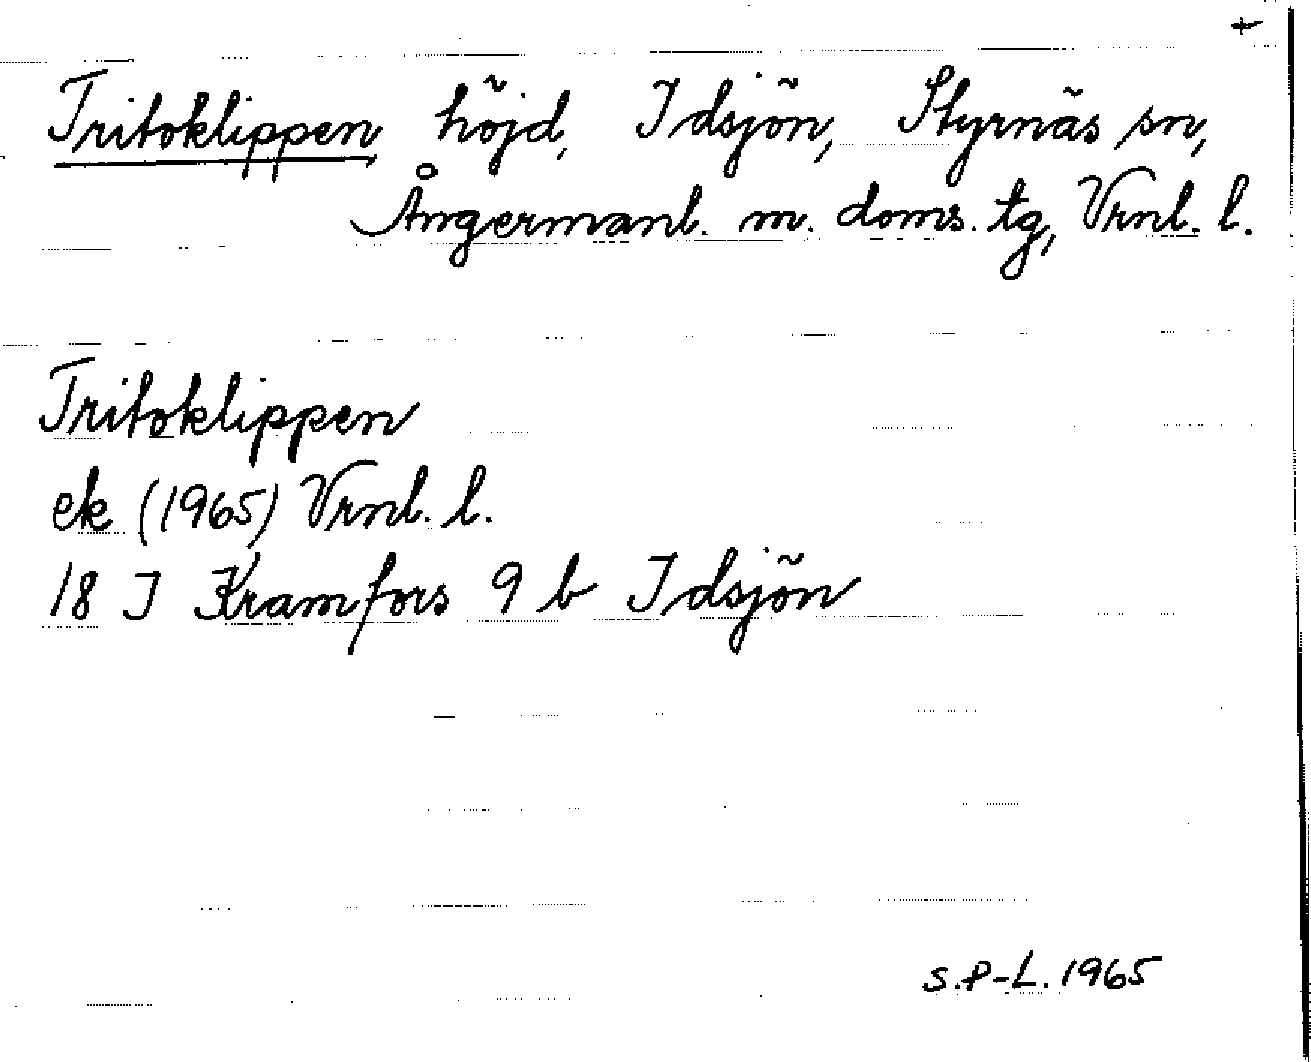 +
Tritoklippen höjd, Idsjön, Styrnäs sn,
Ångermanl. m. doms. tg, Vrnl. l.
Tritoklippen
ek (1965) Vrnl. l.
18 I Kramfors 9 b Idsjön
S.P-L. 1965